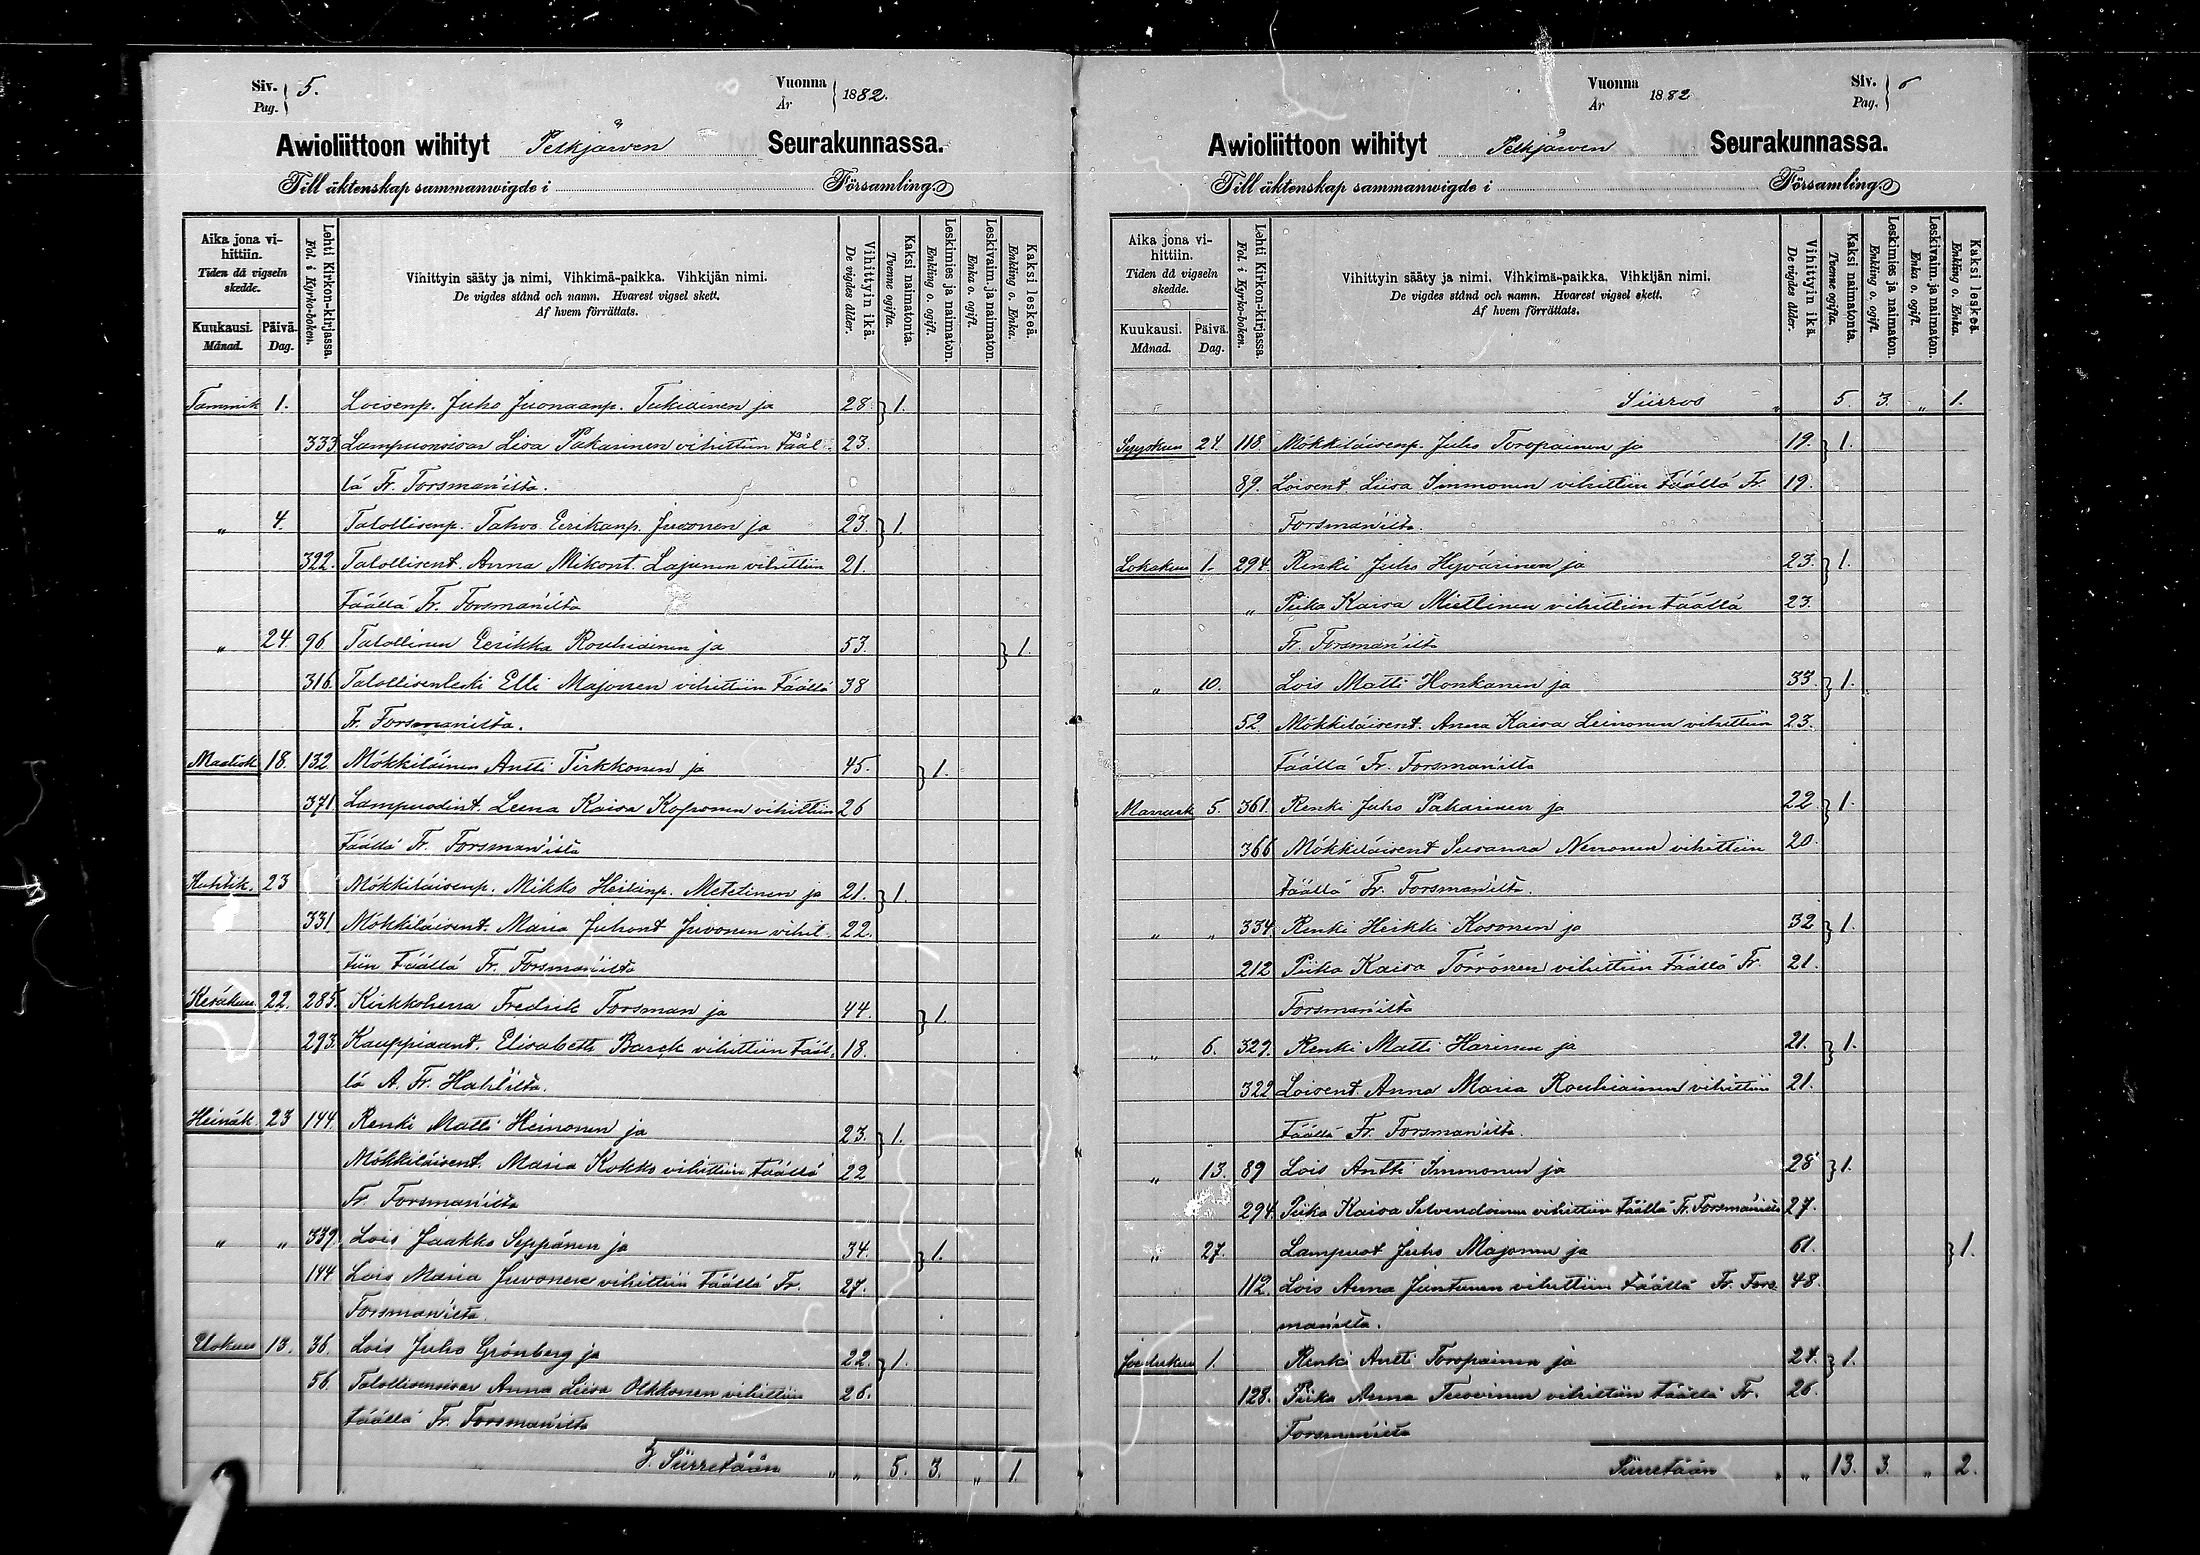 Siv. Pag. 5.
Vuonna År 1882.
Awioliittoon wihityt Pelkjärwen Seurakunnassa.
Till äktenskap sammanwigde i Församling.
Aika jona vihittiin. Tiden då vigseln skedde.
Kuukausi. Månad.
Päivä. Dag.
Lehti Kirkon-kirjassa. Fol. i Kyrko-boken.
Vihittyin sääty ja nimi, Vihkimä-paikka. Vihkijän nimi.
De vigdes stånd och namn. Hvarest vigsel skett.
Af hvem förrättats.
Vihittyin ikä. De vigdes ålder.
Kaksi naimatonta. Tvenne ogifta.
Leskimies ja naimaton. Enkling o. ogift.
Leskivaim. ja naimaton. Enka o. ogift.
Kaksi leskeä. Enkling o. Enka.
Tammik 1. Loisenp. Juho Juonaanp. Tukiainen ja 28. } 1.
333 Lampuorisisar Liisa Pakarinen vihittiin tääl- 23.
lä Fr. Forsman'ilta.
" 4. Talollisenp. Tahvo Eerikanp. Juvonen ja 23. } 1.
322. Talollisent. Anna Mikont. Lajunen vihittiin 21.
täällä Fr. Forsman'ilta
" 24. 96. Talollinen Eerikka Rouhiainen ja 53. } 1.
316. Talollisenleski Elli Majonen vihittiin täällä 38
Fr. Forsmanilta.
Maalisk 18. 132 Mökkiläinen Antti Tirkkonen ja 45. } 1.
371. Lampuodint. Leena Kaisa Koponen vihittiin 26
täällä Fr. Forsman'ilta
Huhtik. 23 Mökkiläisenp. Mikko Heikinp. Metelinen ja 21. } 1.
331 Mökkiläisent. Maria Juhont Juvonen vihit- 22.
tiin täällä Fr. Forsman'ilta
Kesäkuu. 22. 285. Kirkkoherra Fredrik Forsman ja 44. } 1.
293. Kauppiaant. Elisabeth Barck vihittiin tääl- 18.
lä A. Fr. Hahl'ilta.
Heinäk. 23 144. Renki Matti Heinonen ja 23. } 1.
Mökkiläisent. Maria Kokko vihittiin täällä 22
Fr. Forsman'ilta
" " 339. Lois Jaakko Seppänen ja 34. } 1.
144 Lois Maria Juvonen vihittiin täällä Fr. 27.
Forsman'ilta.
Elokuu 13. 36. Lois Juho Grönberg ja 22. } 1.
56. Talollisensisar Anna Liisa Olkkonen vihittiin 26.
täällä Fr. Forsman'ilta
Siirretään " " 5. 3. " 1.
Siv. Pag. 6
Vuonna År 1882
Awioliittoon wihityt Pelkjärwen Seurakunnassa.
Till äktenskap sammanwigde i Församling.
Aika jona vihittiin. Tiden då vigseln skedde.
Kuukausi. Månad.
Päivä. Dag.
Lehti Kirkon-kirjassa. Fol. i Kyrko-boken.
Vihittyin sääty ja nimi, Vihkimä-paikka. Vihkijän nimi.
De vigdes stånd och namn. Hvarest vigsel skett.
Af hvem förrättats.
Vihittyin ikä. De vigdes ålder.
Kaksi naimatonta. Tvenne ogifta.
Leskimies ja naimaton. Enkling o. ogift.
Leskivaim. ja naimaton. Enka o. ogift.
Kaksi leskeä. Enkling o. Enka.
Siirros " 5. 3. " 1.
Syyskuu 24. 118. Mökkiläisenp. Juho Toropainen ja 19. } 1.
89. Loisent. Liisa Immonen vihittiin täällä Fr. 19.
Forsman'ilta.
Lokakuu 1. 294. Renki Juho Hyvärinen ja 23. } 1.
" Piika Kaisa Miettinen vihittiin täällä 23.
Fr. Forsman'ilta
" 10. Lois Matti Honkanen ja 33. } 1.
52. Mökkiläisent. Anna Kaisa Leinonen vihittiin 23.
täällä Fr. Forsman'ilta
Marrask 5. 361. Renki Juho Pakarinen ja 22. } 1.
366 Mökkiläisent Susanna Nenonen vihittiin 20.
täällä Fr. Forsman'ilta.
" " 334. Renki Heikki Kosonen ja 32 } 1.
212 Piika Kaisa Törrönen vihittiin täällä Fr. 21.
Forsman'ilta
" 6. 329. Renki Matti Harinen ja 21. } 1.
322 Loisent. Anna Maria Rouhiainen vihittiin 21.
täällä Fr. Forsman'ilta.
" 13. 89 Lois Antti Immonen ja 28 } 1.
294. Piika Kaisa vihittiin täällä Fr. Forsman'ilta 27.
" 27. Lampuot Juho Majonen ja 61. } 1.
112. Lois Anna Juntunen vihittiin täällä Fr. Fors- 48.
man'ilta.
Joulukuu 1. Renki Antti Toropainen ja 24. } 1.
128. Piika Anna Tuovinen vihittiin täällä Fr. 26.
Forsman'ilta
Siirretään " " 13. 3. " 2.